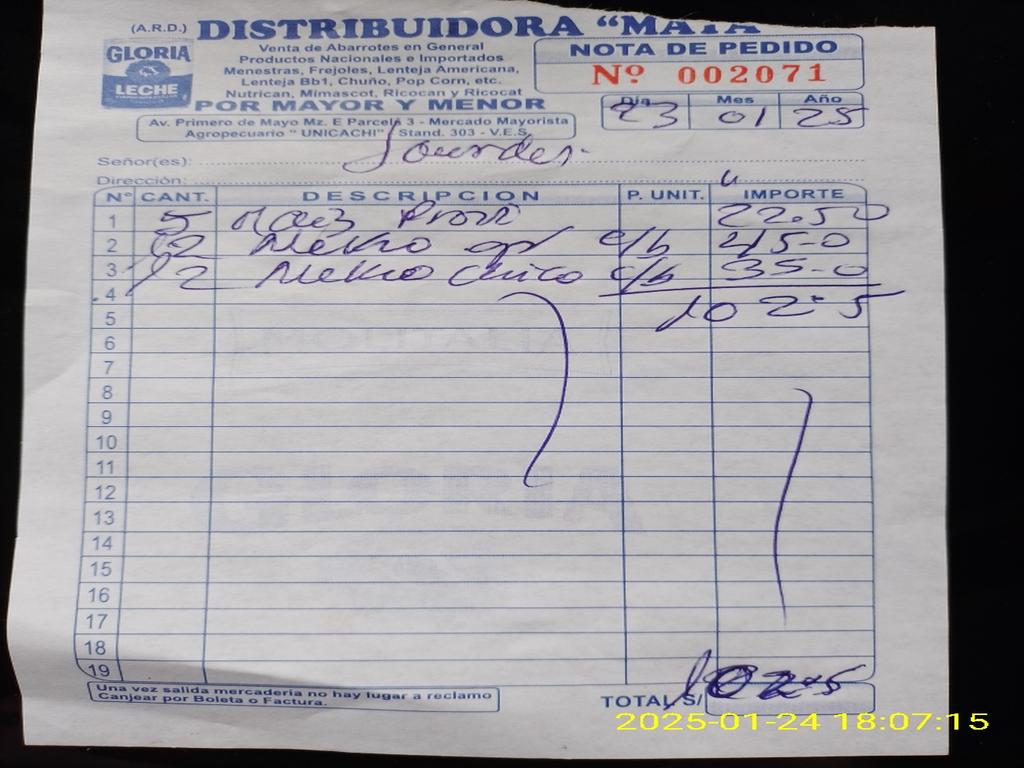 (A.R.D.) DISTRIBUIDORA "MATA
GLORIA
LECHE
Venta de Abarrotes en General
Productos Nacionales e Importados
Menestras, Frejoles, Lenteja Americana,
Lenteja Bb1, Chuño, Pop Corn, etc.
Nutrican, Mimascot, Ricocan y Ricocat
POR MAYOR Y MENOR
Av. Primero de Mayo Mz. E Parcela 3 - Mercado Mayorista
Agropecuario " UNICACHI" Stand. 303 - V.E.S.
NOTA DE PEDIDO
Nº 002071
Día Mes Año
23 01 25
Señor(es): Lourdes.
Dirección:
Nº CANT. DESCRIPCION P. UNIT. IMPORTE
1 5 Maiz 22.50
2 12 Metro c/b 45-0
3 12 Metro chico c/b 35-0
4 102-5
5
6
7
8
9
10
11
12
13
14
15
16
17
18
19
Una vez salida mercaderia no hay lugar a reclamo
Canjear por Boleta o Factura.
TOTAL S/ 102-5
2025-01-24 18:07:15